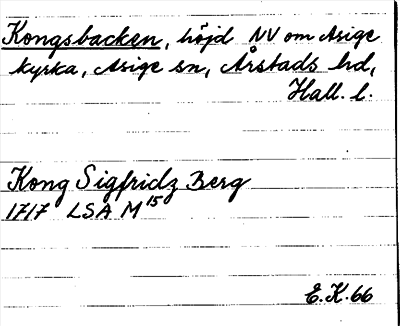 Kongsbacken, höjd NV om Asige
kyrka, Asige sn, Årstads hd,
Hall. l.
Kong Sigfridz Berg
1717 LSA M 15
E.K. 66